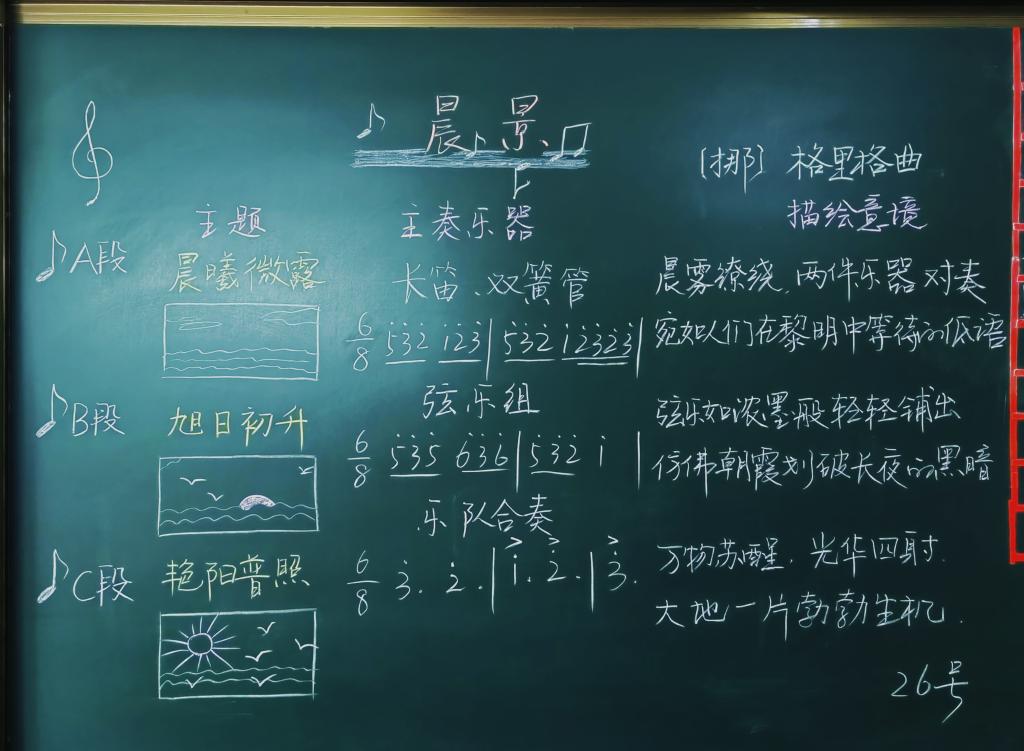 晨景
[挪] 格里格曲
主题 主奏乐器 描绘意境
A段 晨曦微露 长笛、双簧管 晨雾缭绕,两件乐器对奏
6/8 5̇3̇2̇ 1̇2̇3̇ | 5̇3̇2̇ 1̇2̇3̇2̇3̇ | 宛如人们在黎明中等待的低语
B段 旭日初升 弦乐组 弦乐如浓墨般轻轻铺出
6/8 5̇3̇5̇ 6̇3̇6̇ | 5̇3̇2̇ 1̇ | 仿佛朝霞划破长夜的黑暗
乐队合奏
C段 艳阳普照 6/8 3̇. 2̇. | 1̇. 2̇. | 3̇. 万物苏醒,光华四射.
大地一片勃勃生机.
26号